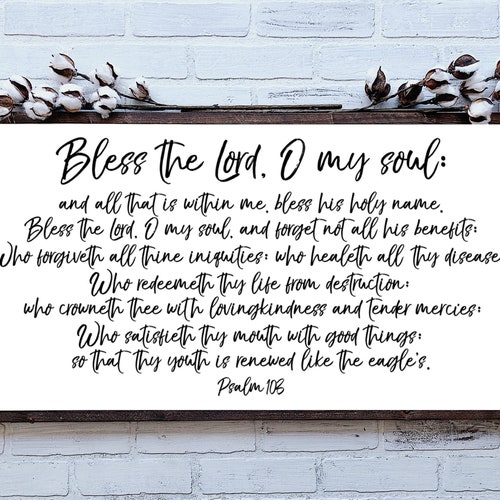 Bless the Lord, O my soul:
and all that is within me, bless his holy name.
Bless the Lord, O my soul, and forget not all his benefits:
Who forgiveth all thine iniquities; who healeth all thy disease
Who redeemeth thy life from destruction;
who crowneth thee with lovingkindness and tender mercies;
Who satisfieth thy mouth with good things;
so that thy youth is renewed like the eagle's.
Psalm 103